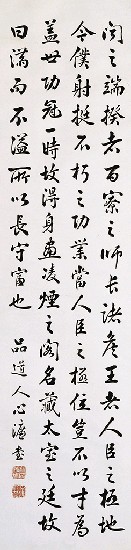 聞之端揆者百寮之師長諸侯王者人臣之極地
今僕射挺不朽之功業當人臣之極位豈不以才為
蓋世功冠一時故得身畫凌煙之閣名藏太室之廷故
曰滿而不溢所以長守富也